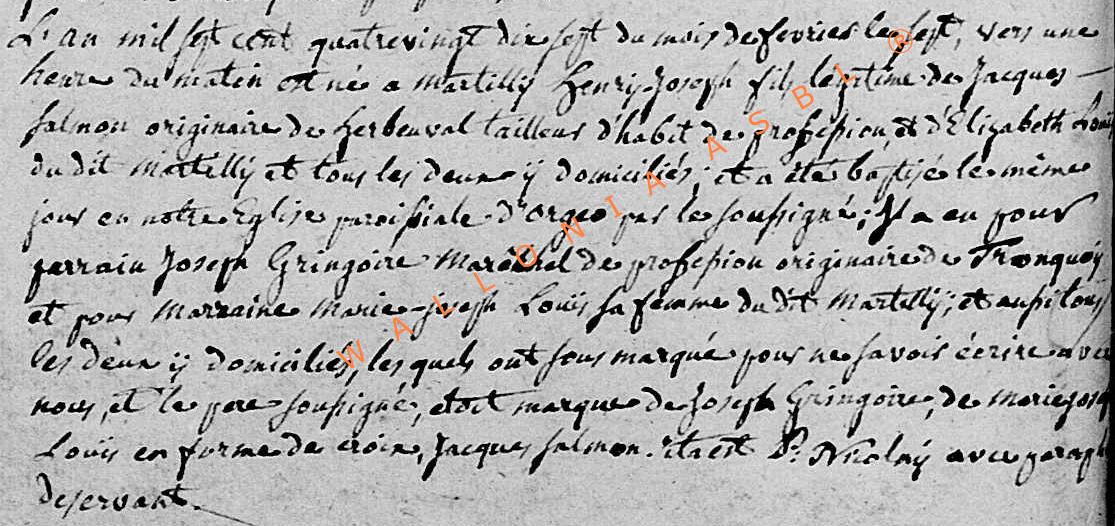 L'an mil sept cent quatrevingt dix sept du mois de fevrier le sept, vers une
heure du matin est né a Martilly Henry Joseph fils legitime de Jacques
Salmon originaire de herbeuval tailleur d'habit de profession, et d'Elizabeth Louis
du dit Martilly et tous les deux ÿ domiciliés; et a été baptisé le même
jour en notre Eglise paroissiale d'orgeo par le soussigné; Il a eu pour
parrain Joseph Gringoire Maréchal de profession originaire de Tronquoÿ
et pour Marraine Marie-joseph Louïs sa femme du dit Martillÿ; et aussi tous
les deux ÿ domiciliés, lesquels ont sousmarqué pour ne savoir écrire avec
nous, et le pere soussigné, etoit marque de Joseph Gringoire, de marie joseph
Louïs en forme de croix, Jacques Salmon. ita est P. Nicolaÿ avec paraphe
deservant.
WALLONIA ASBL ®